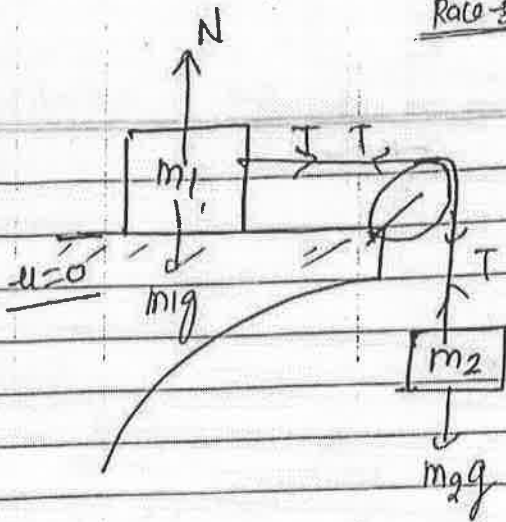 Race-
N
T T
m1
μ=0
m1g
T
m2
m2g